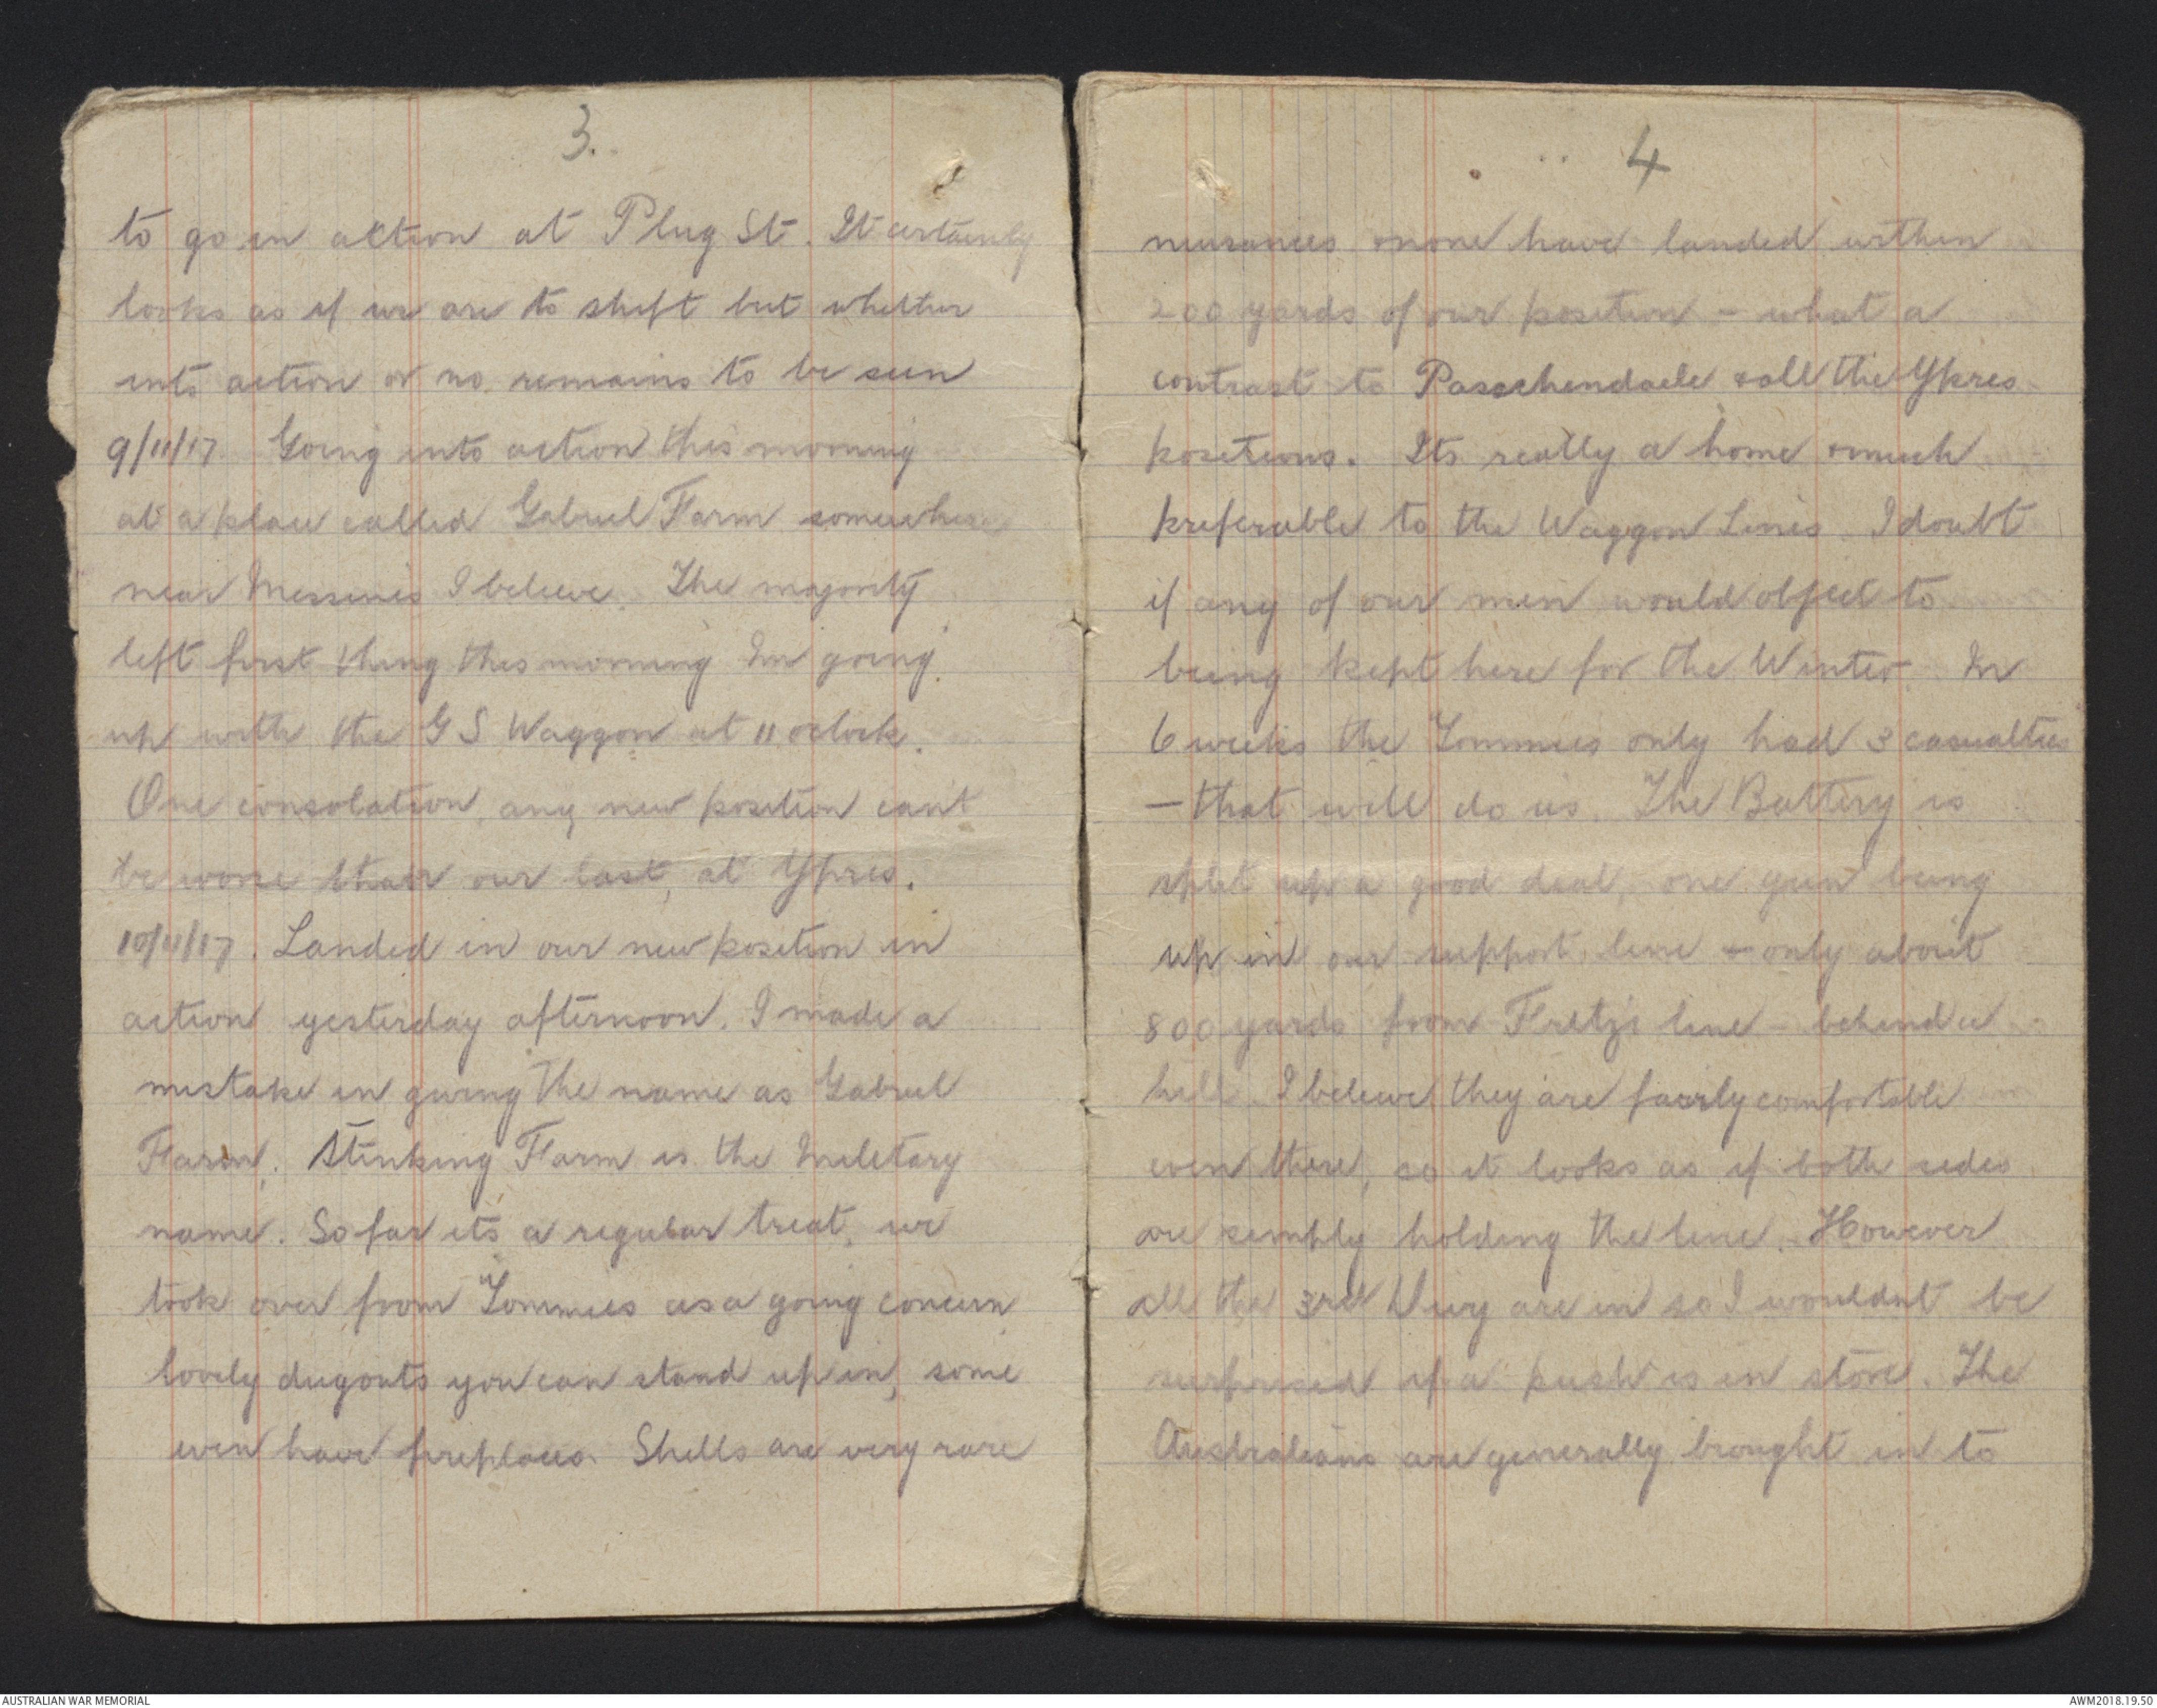 3.
to go in action at Plug St. It certainly
looks as if we are to shift but whether
into action or no remains to be seen
9/11/17. Going into action this morning
at a place called Gabriel Farm somewhere
near Messines I believe. The majority
left first thing this morning Im going
up with the G S Waggon at 11 oclock.
One consolation, any new position can't
be worse than our last, at Ypres.
10/11/17. Landed in our new position in
action yesterday afternoon. I made a
mistake in giving the name as Gabriel
Farm. Stinking Farm is the Military
name. So far its a regular treat, we
took over from Tommies as a going concern
lovely dugouts you can stand up in, some
even have fireplaces. Shells are very rare
4
nuisances & none have landed within
200 yards of our position - what a
contrast to Passchendaele & all the Ypres
positions. Its really a home & much
preferable to the Waggon Lines. I doubt
if any of our men would object to
being kept here for the Winter. In
6 weeks the Tommies only had 3 casualties
- that will do us. The Battery is
split up a good deal, one gun being
up in our support line - only about
800 yards from Fritz's line - behind a
hill. I believe they are fairly comfortable
even there, so it looks as if both sides
are simply holding the line. However
all the 3rd Divvy are in so I wouldnt be
surprised if a push is in store. The
Australians are generally brought in to
AUSTRALIAN WAR MEMORIAL
AWM2018.19.50